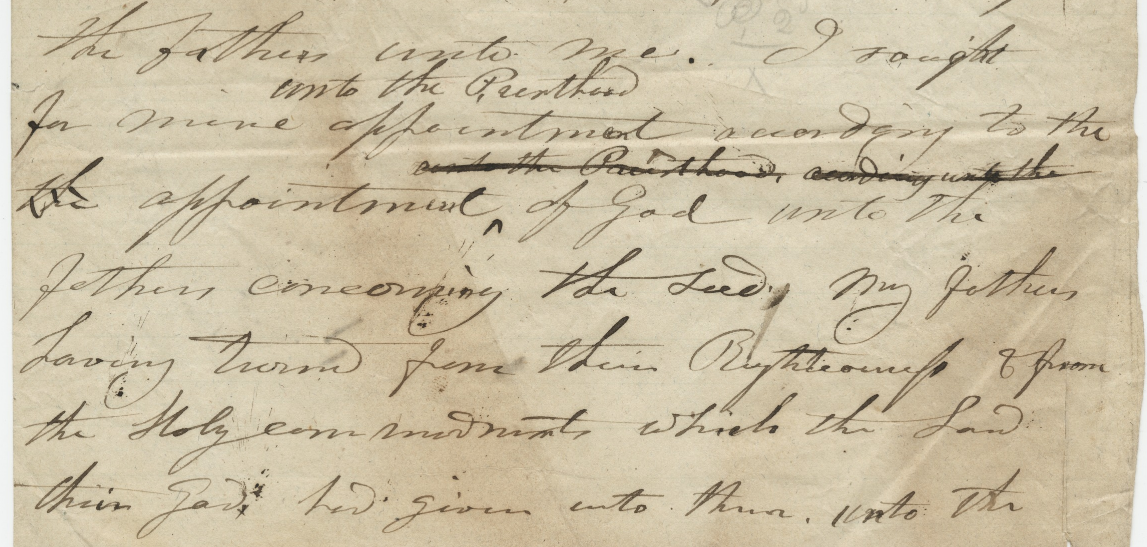 the fathers unto me. I saught
unto the Priesthood
for mine appointment according to the
unto the Priesthood, acording unto the
the appointment of God unto the
fathers concerning the Seed, My fathers
having turned from their Righteousness & from
the Holy commandments which the Lord
their God, had given unto them. unto the